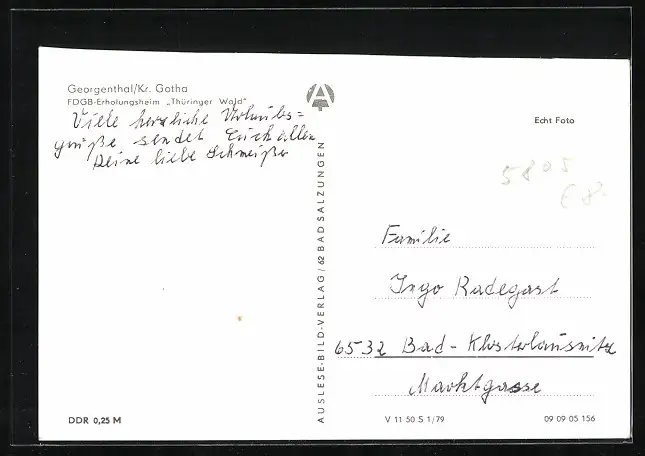 Georgenthal/Kr. Gotha
FDGB-Erholungsheim „Thüringer Wald"
Viele herzliche Urlaubs=
grüße sendet Euch allen
Deine liebe
AUSLESE-BILD-VERLAG / 62 BAD SALZUNGEN
A
Echt Foto
5805
€ 8.
Familie
Ingo Radegast
6532 Bad-Klosterlausnitz
Marktgasse
DDR 0,25 M
V 11 50 S 1/79
09 09 05 156